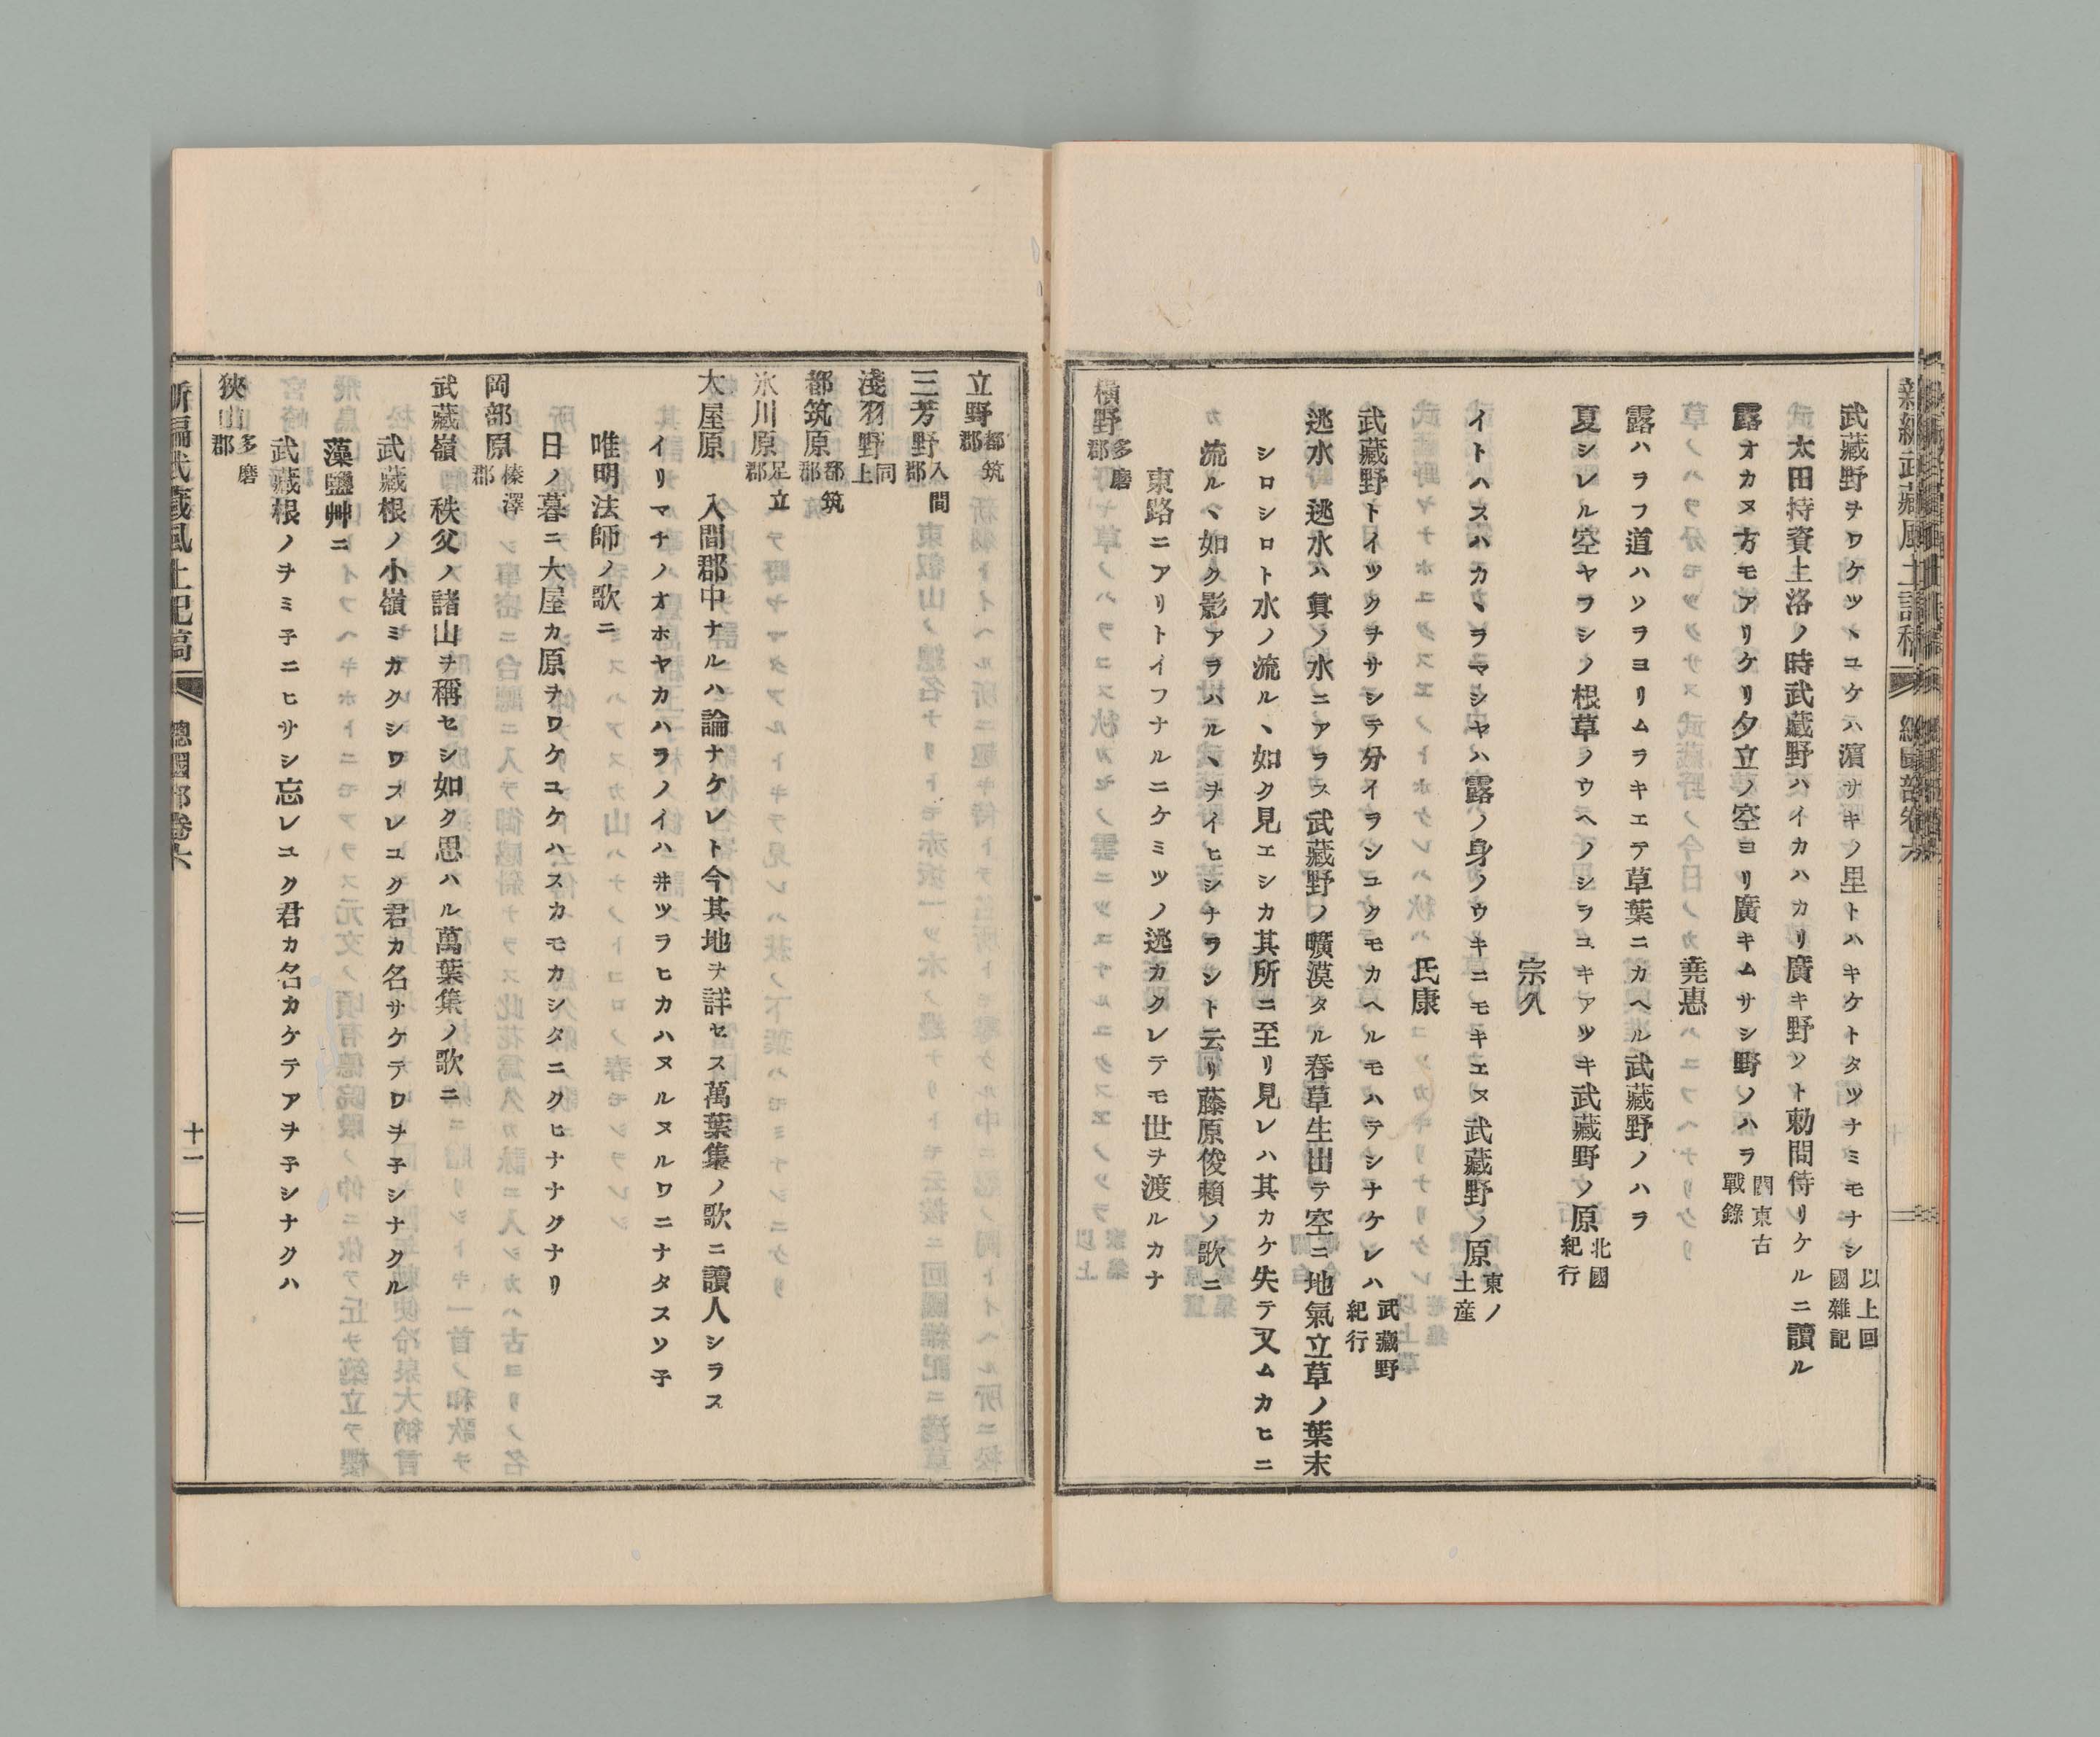 武藏野ヲワケツヽユケハ濱サキノ里トハキケトタツナミモナシ以上回國雜記
太田持資上洛ノ時武藏野ハイカハカリ廣キ野ソト勅問侍リケルニ讀ル
露オカヌ方モアリケリ夕立ノ空ヨリ廣キムサシ野ノハラ關東古戰錄
堯惠
露ハラフ道ハソヲヨリムラキエテ草葉ニカヘル武藏野ノハラ
夏シレル空ヤヲシノ根草ノウヘノシラユキアツキ武藏野ノ原北國紀行
宗久
イトハスハカヽヲマシヤハ露ノ身ノウキニモキエヌ武藏野ノ原東ノ土産
氏康
武藏野トイツクヲサシテ分イラシユクモカヘルモハテシナケレハ武藏野紀行
逃水 逃水ハ眞ノ水ニアラス武藏野ノ曠漠タル春草生出テ空ニ地氣立草ノ葉末
シロシロト水ノ流ルヽ如ク見エシカ其所ニ至リ見レハ其カケ失テ又ムカヒニ
流ルヽ如ク影アラハルヽヲイヒシナラント云リ藤原俊賴ノ歌ニ
東路ニアリトイフナルニケミツノ逃カクレテモ世ヲ渡ルカナ
横野多磨郡
立野都筑郡
三芳野入間郡
淺羽野同上
都筑原都筑郡
氷川原足立郡
大屋原 入間郡中ナルハ論ナケレト今其地ヲ詳セス萬葉集ノ歌ニ讀人シラス
イリマチノオホヤカハラノイハ井ツラヒカハヌルヌルワニナタエソ子
唯明法師ノ歌ニ
日ノ暮ニ大屋カ原ヲワケユケハスカモカシタニクヒナナクナリ
岡部原榛澤郡
武藏嶺 秩父ノ諸山ヲ稱セシ如ク思ハル萬葉集ノ歌ニ
武藏根ノ小嶺ミカクシワスレユク君カ名サケテワヲ子シナクル
藻鹽艸ニ
武藏根ノヲミ子ニヒサシ忘レユク君カ名カケテアヲ子シナクハ
狹山多磨郡
新編武藏風土記稿 總國部卷六 十一